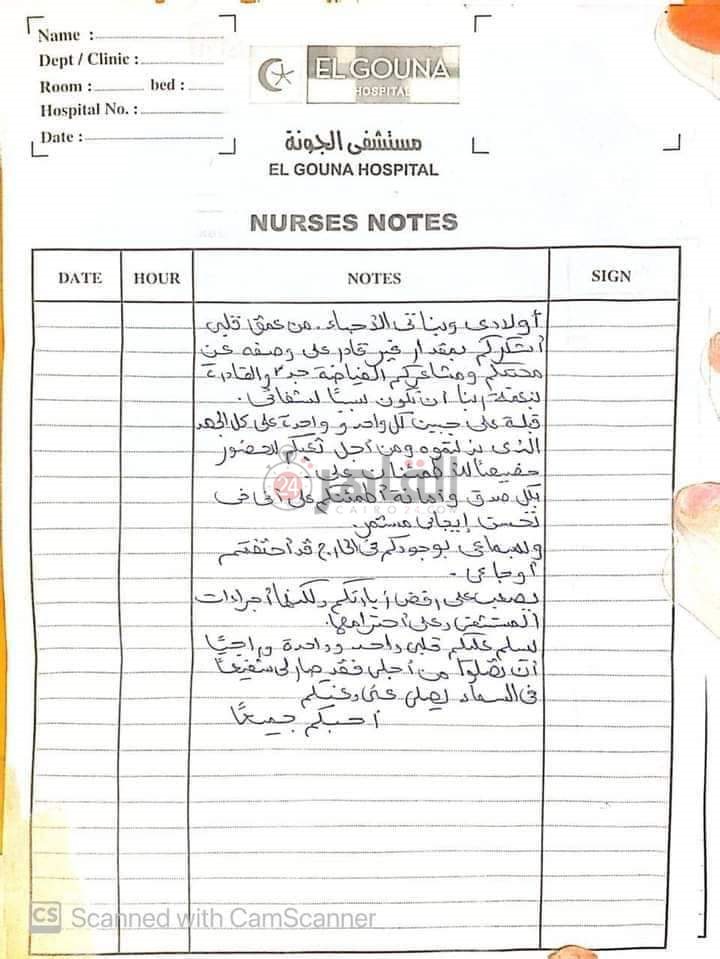 Name :
Dept / Clinic :
Room : bed :
Hospital No. :
Date :
EL GOUNA
HOSPITAL
مستشفى الجونة
EL GOUNA HOSPITAL
NURSES NOTES
DATE HOUR NOTES SIGN
أولادى وبناتى الأحباء، من عمق قلبى
أشكركم بمقدار غير قادر على وصفه عن
محبتكم ومشاعركم الفياضة جدًا والقادرة
بنعمة ربنا أن تكون سببًا لشفائى.
قبلة على جبين كل واحد و واحدة على كل الجهد
الذى بذلتموه ومن أجل تعبكم لحضور
جميعنا للأطمئنان على.
بكل صدق و أمانة أطمنكم على أنى فى
تحسن إيجابى مستمر.
وبسماعى بوجودكم فى الخارج قد أختفتم
أوجاعى.
يصعب على رفض زيارتكم ولكنها أجراءات
المستشفى وعلى أحترامها.
يسلم عليكم قلبى واحد و واحدة راجيًا
أن تصلوا من أجلى فقد صار لى شفيعًا
فى السماء يصلى عنى وعنكم
أحبكم جميعًا
القاهرة 24
CAIRO24.COM
CS Scanned with CamScanner